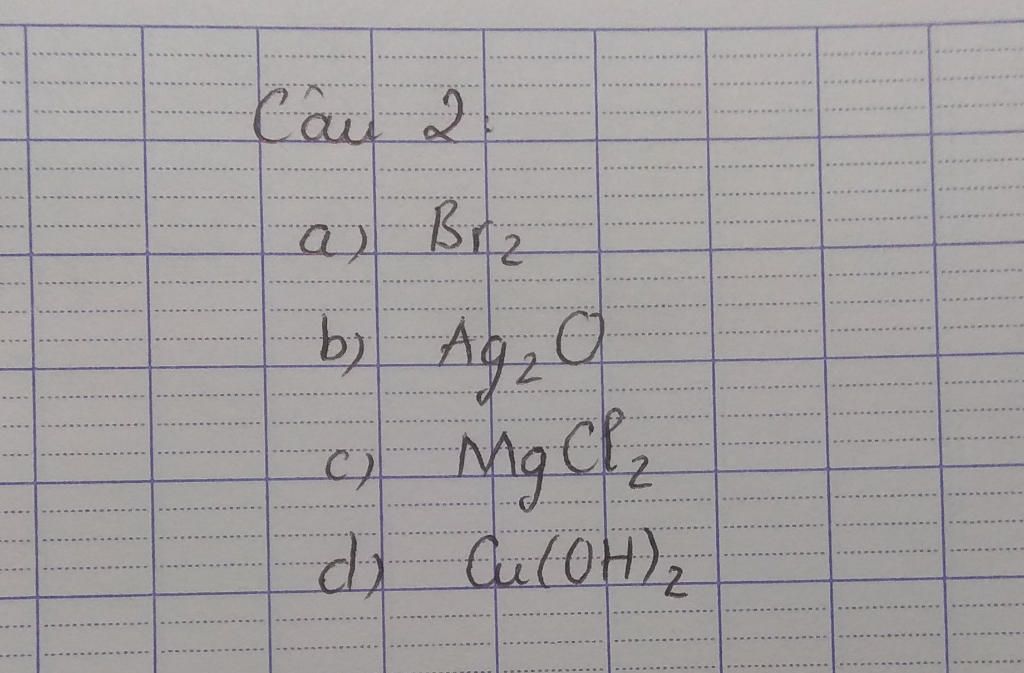 Câu 2:
a) Br₂
b) Ag₂O
c) MgCl₂
d) Cu(OH)₂